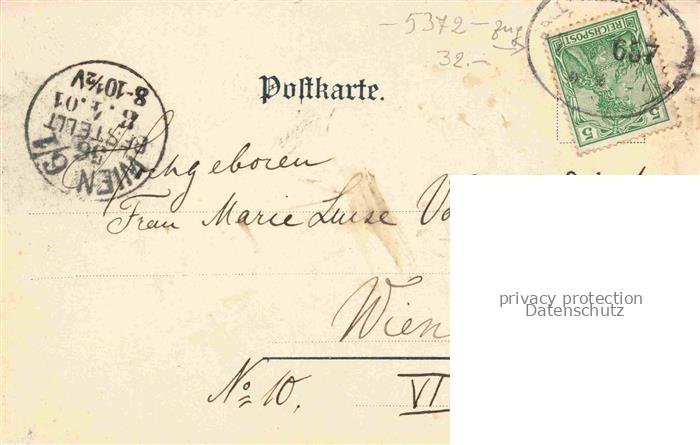 – 5372 – zug
32.–
REICHSPOST
5 5
687
Postkarte.
WIEN 6/1
BESTELLT
8. 4. 01
8-10½V
Hochgeboren
Frau Marie Luise
privacy protection
Datenschutz
Wien
No 10. VI